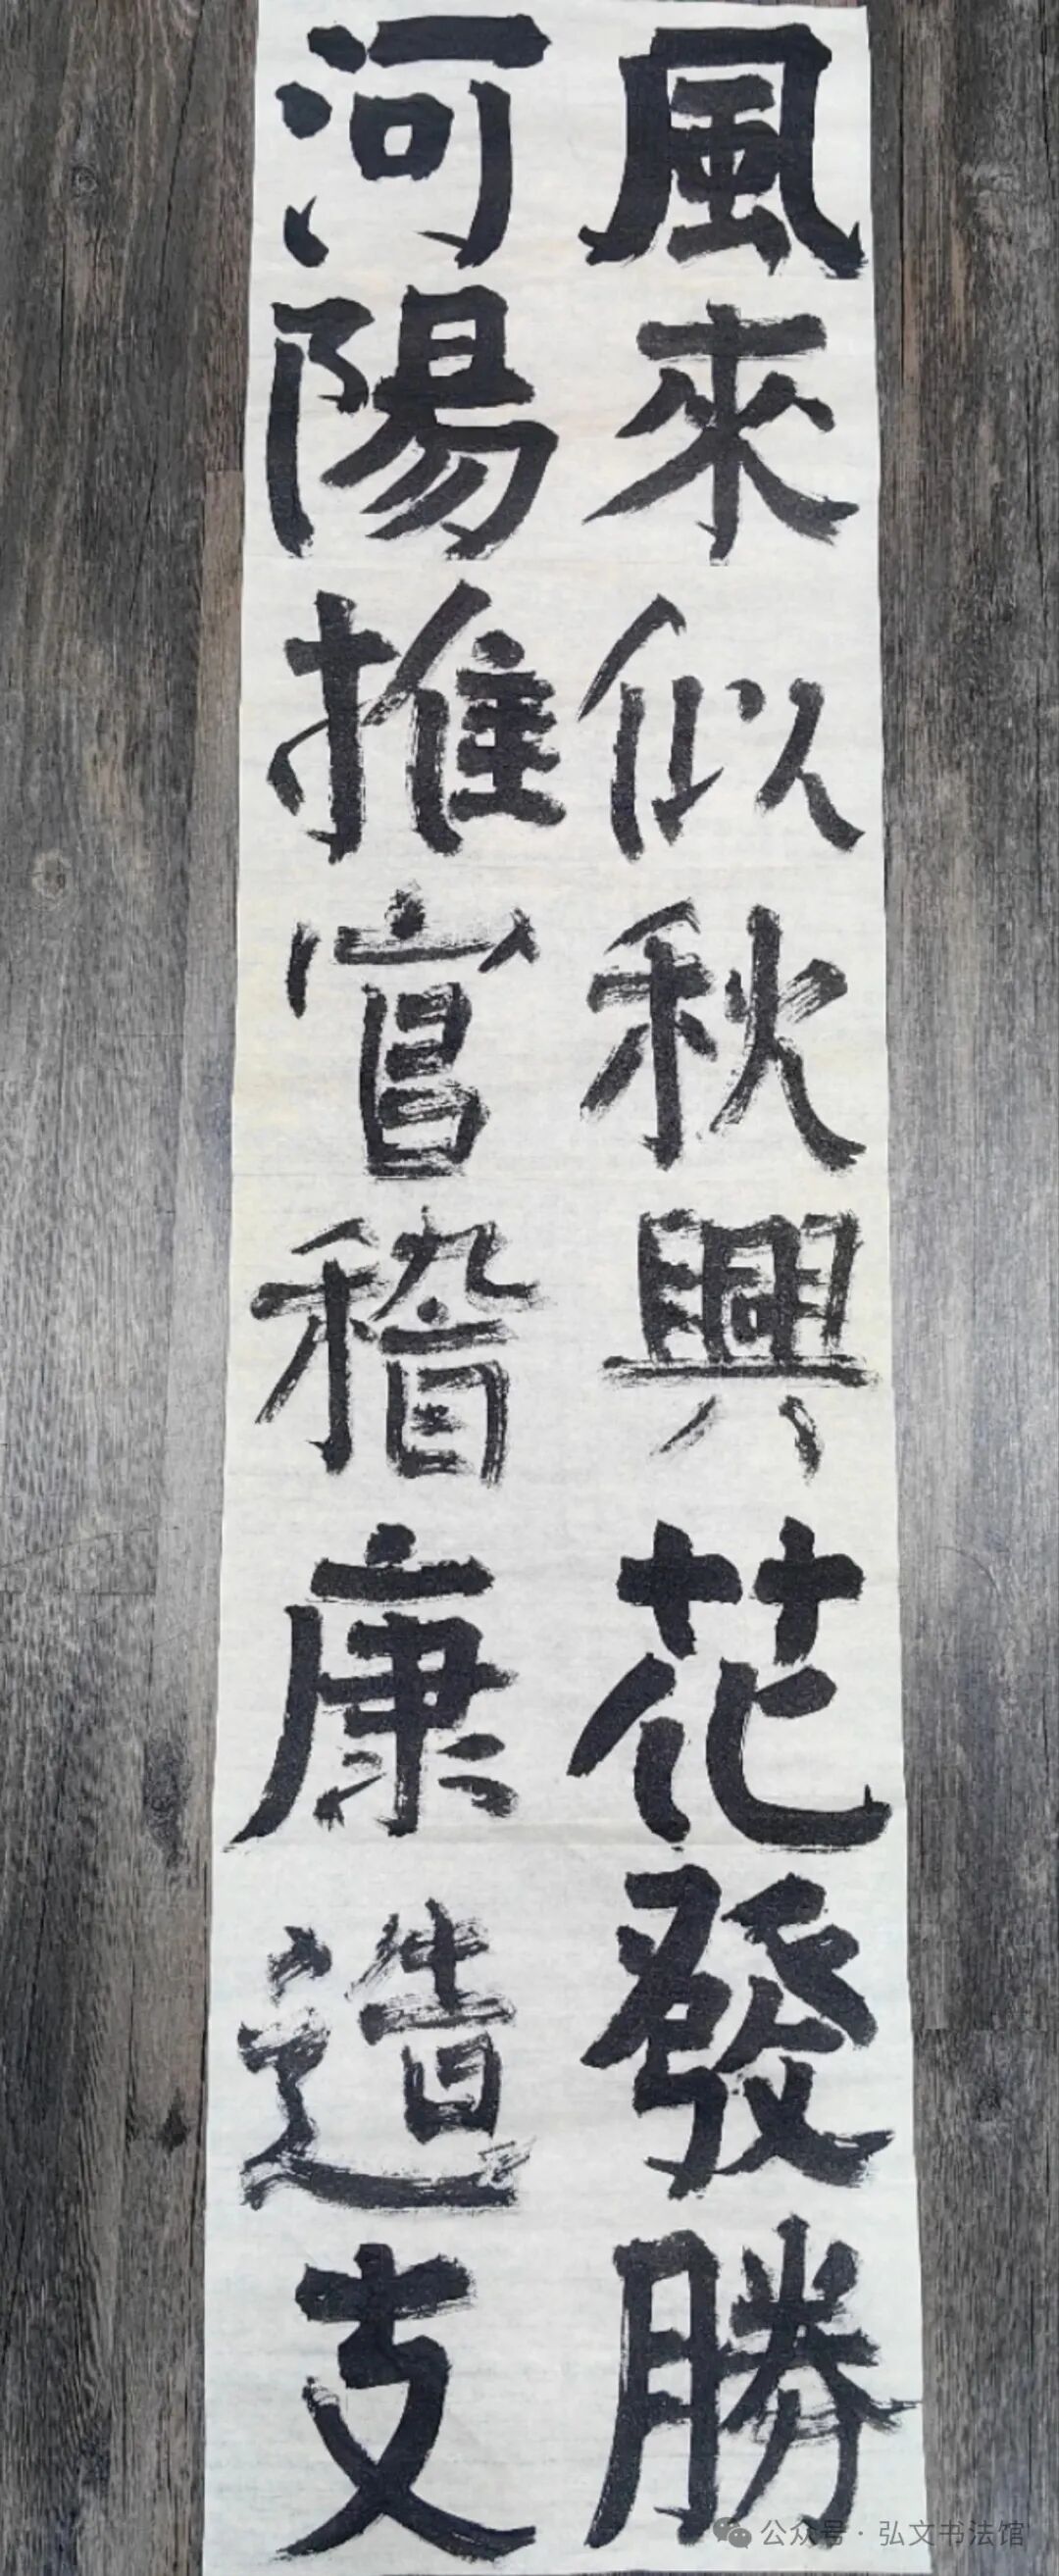 風來似秋興花發勝
河陽推官稽康造支
公众号·弘文书法馆